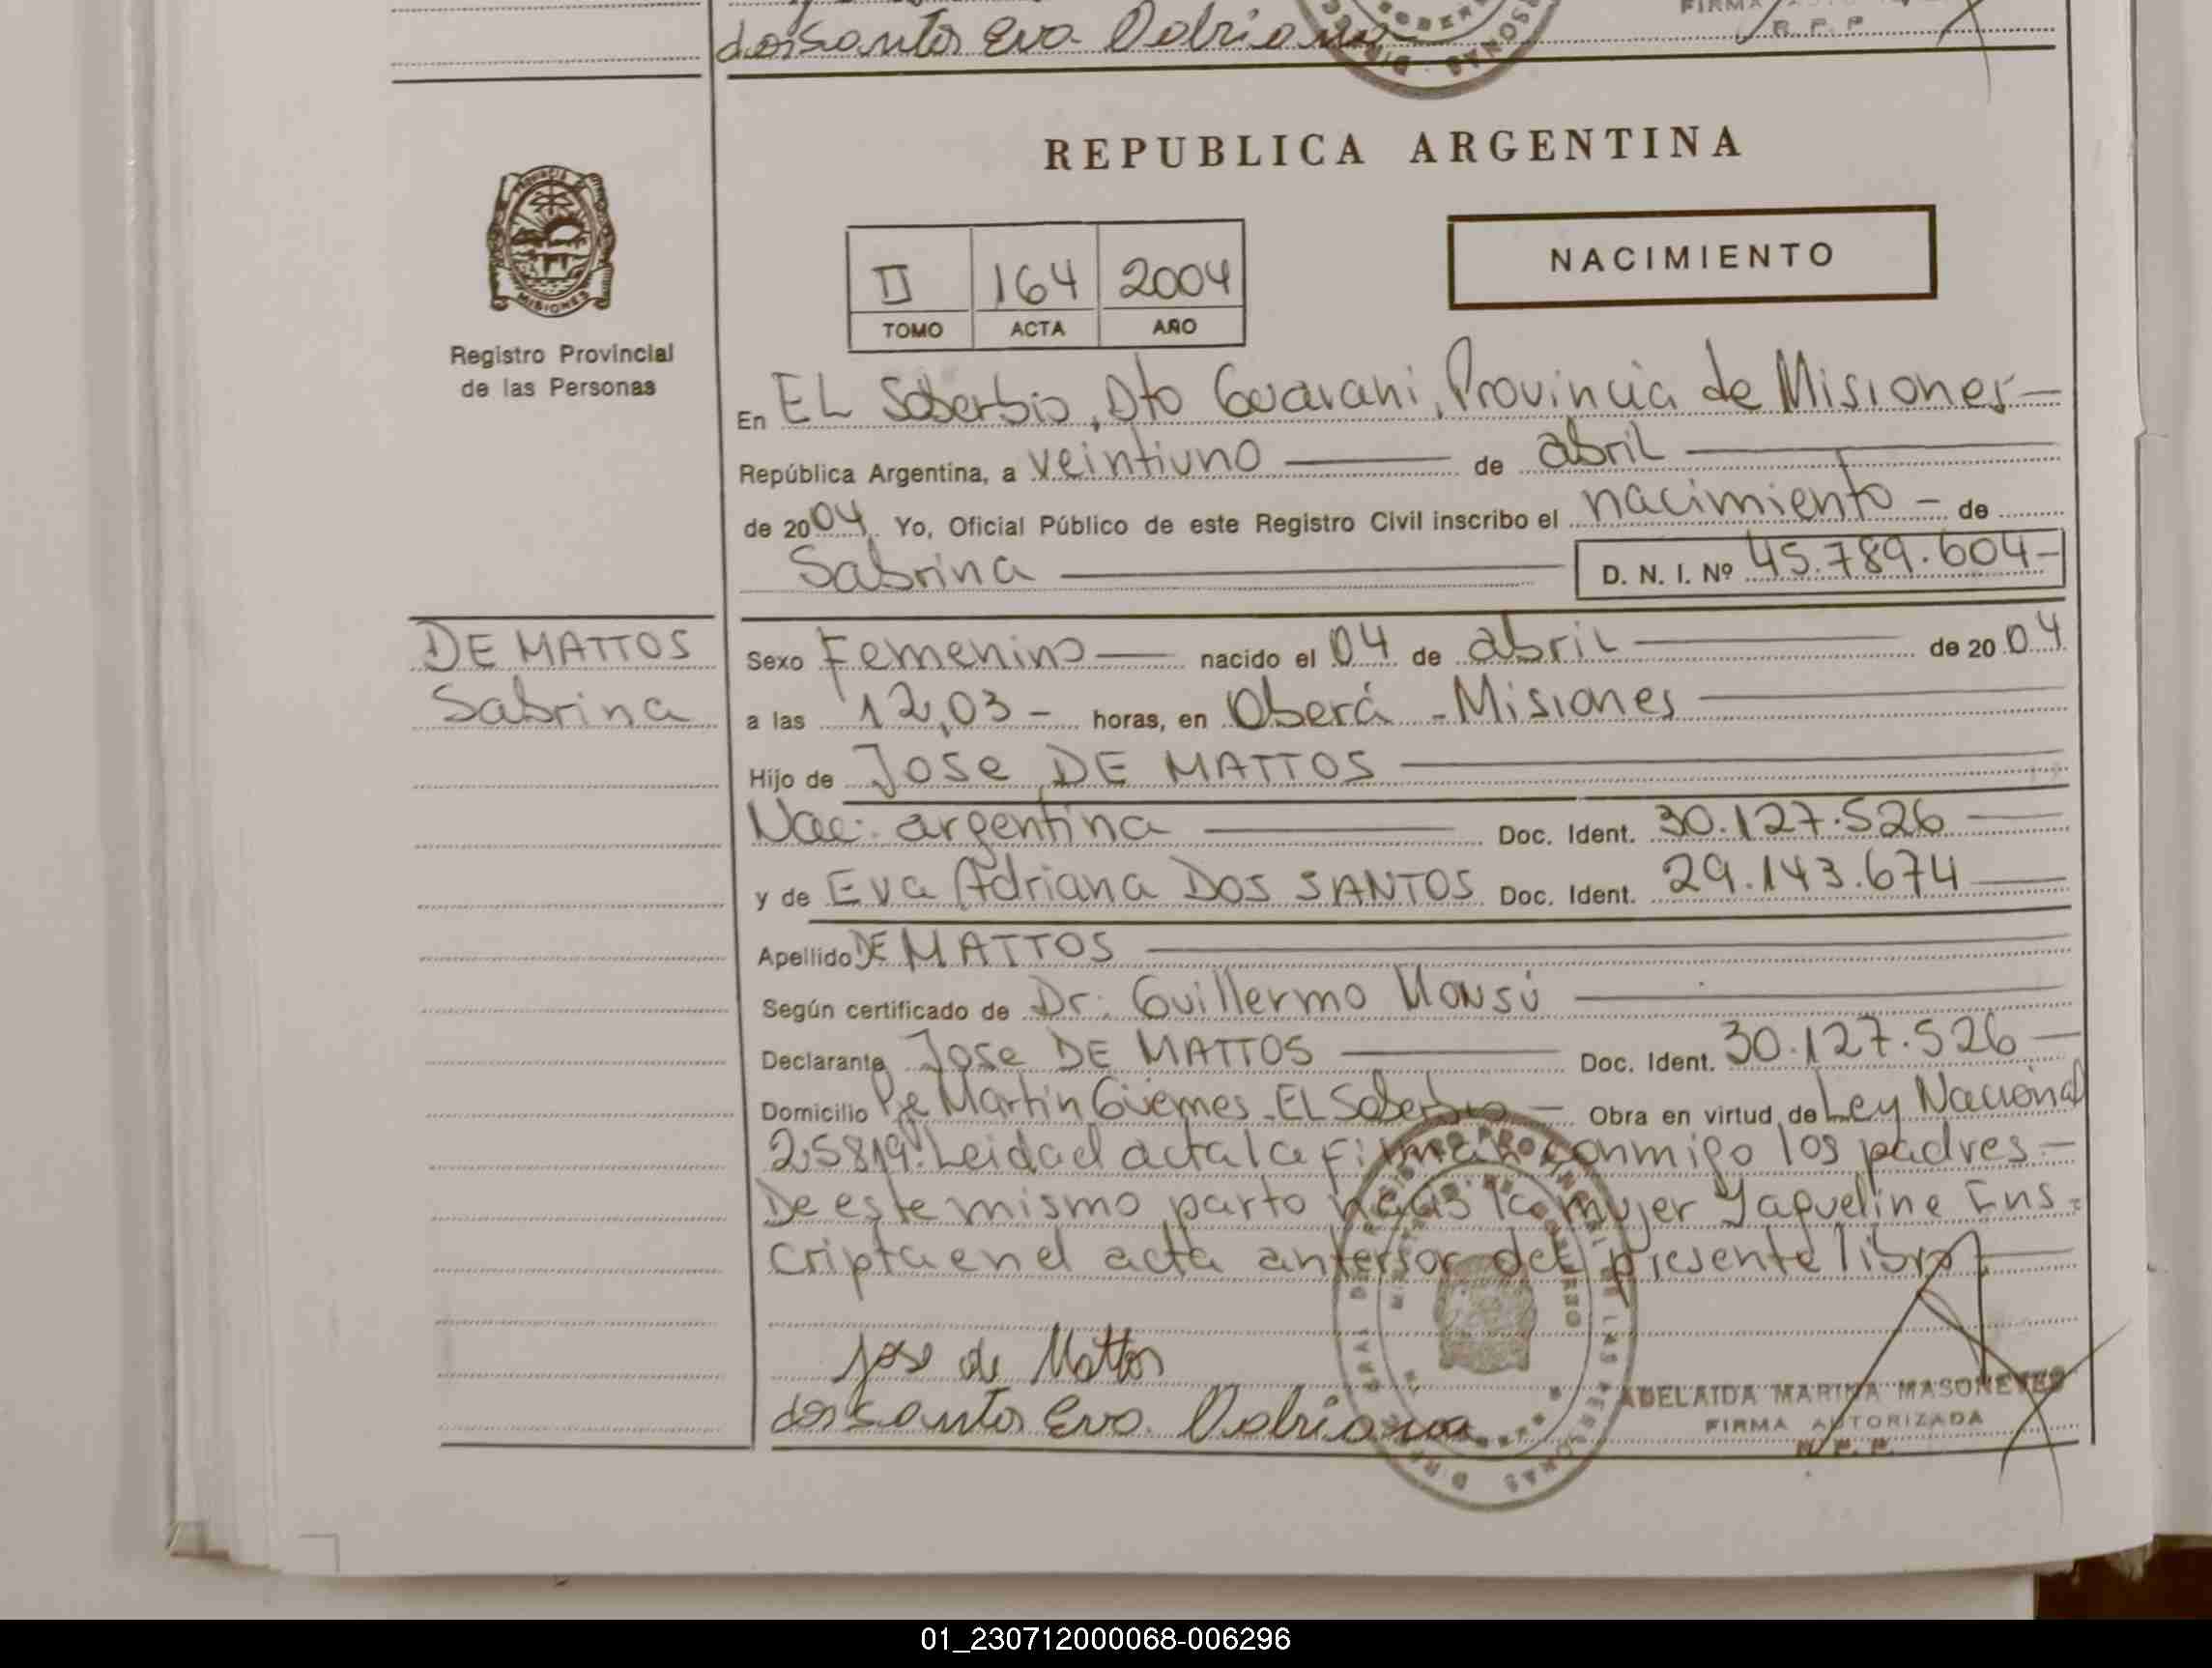 dos santos Eva Adriana
FIRMA
R. P. P.
REPUBLICA ARGENTINA
MISIONES
Registro Provincial
de las Personas
II 164 2004
TOMO ACTA AÑO
NACIMIENTO
En EL Soberbio, Dto Guarani, Provincia de Misiones
República Argentina, a veintiuno de abril
de 2004 Yo, Oficial Público de este Registro Civil inscribo el nacimiento - de
Sabrina D. N. I. Nº 45.789.604-
DE MATTOS
Sabrina
Sexo Femenino nacido el 04 de abril de 2004
a las 12,03 - horas, en Oberá - Misiones
Hijo de Jose DE MATTOS
Nac: argentina Doc. Ident. 30.127.526
y de Eva Adriana DOS SANTOS Doc. Ident. 29.143.674
Apellido DE MATTOS
Según certificado de Dr. Guillermo Monsú
Declarante Jose DE MATTOS Doc. Ident. 30.127.526
Domicilio Pje Martin Güemes - EL Soberbio - Obra en virtud de Ley Nacional
25819. Leida el acta la firman conmigo los padres -
De este mismo parto nació la mujer Yaqueline Ins-
cripta en el acta anterior del presente libro
Jose de Mattos
dos santos Eva Adriana
ADELAIDA MARINA MASONEYES
FIRMA AUTORIZADA
R. P. P.
01_230712000068-006296